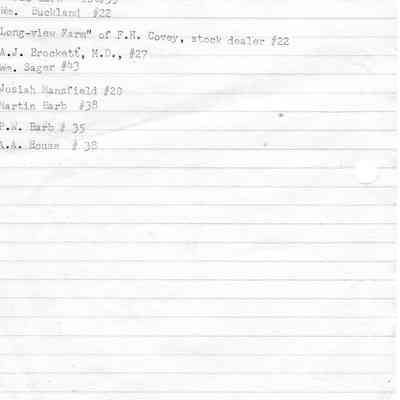 Wm. Buckland #22
Long-view Farm" of F.H. Covey, stock dealer #22
A.J. Brockett, M.D., #27
Wm. Sager #43
Josiah Mansfield #20
Martin Barb #38
P.W. Barb # 35
A.A. House # 38